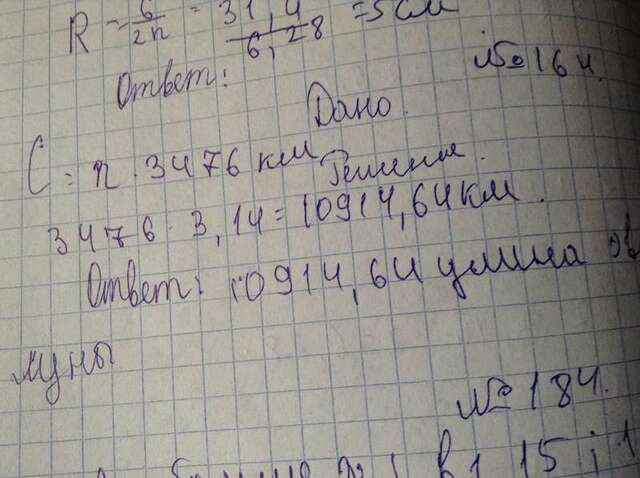 R = 6/2π = 31,4/6,28 = 5 см
Ответ:
№ 164.
Дано.
C = π · 3476 км
Решение.
3476 · 3,14 = 10914,64 км.
Ответ: 10914,64 длина
луны
№ 184.
В 1 15 ; 1